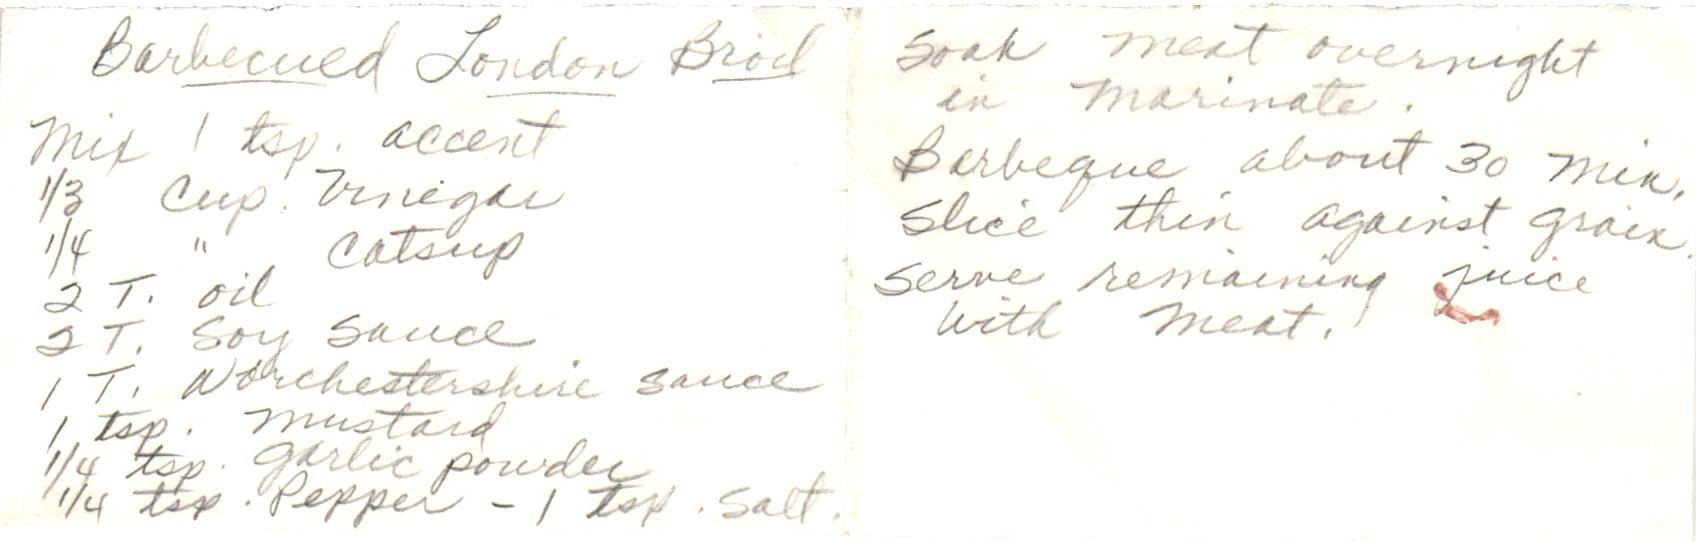 Barbecued London Broil
Mix 1 tsp. accent
1/3 Cup. Vinegar
1/4 " Catsup
2 T. oil
2 T. Soy Sauce
1 T. Worchestershire Sauce
1 tsp. Mustard
1/4 tsp. garlic powder
1/4 tsp. Pepper - 1 tsp. Salt.
Soak meat overnight
in Marinate.
Barbeque about 30 min.
Slice thin against grain.
Serve remaining juice
with meat.